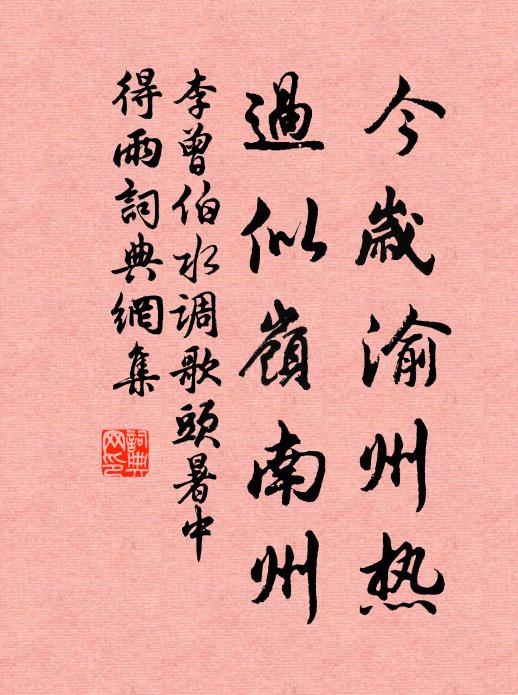 今歲渝州热
過似嶺南州
李曾伯水调歌頭暑中
得雨詞典網集
詞典網印